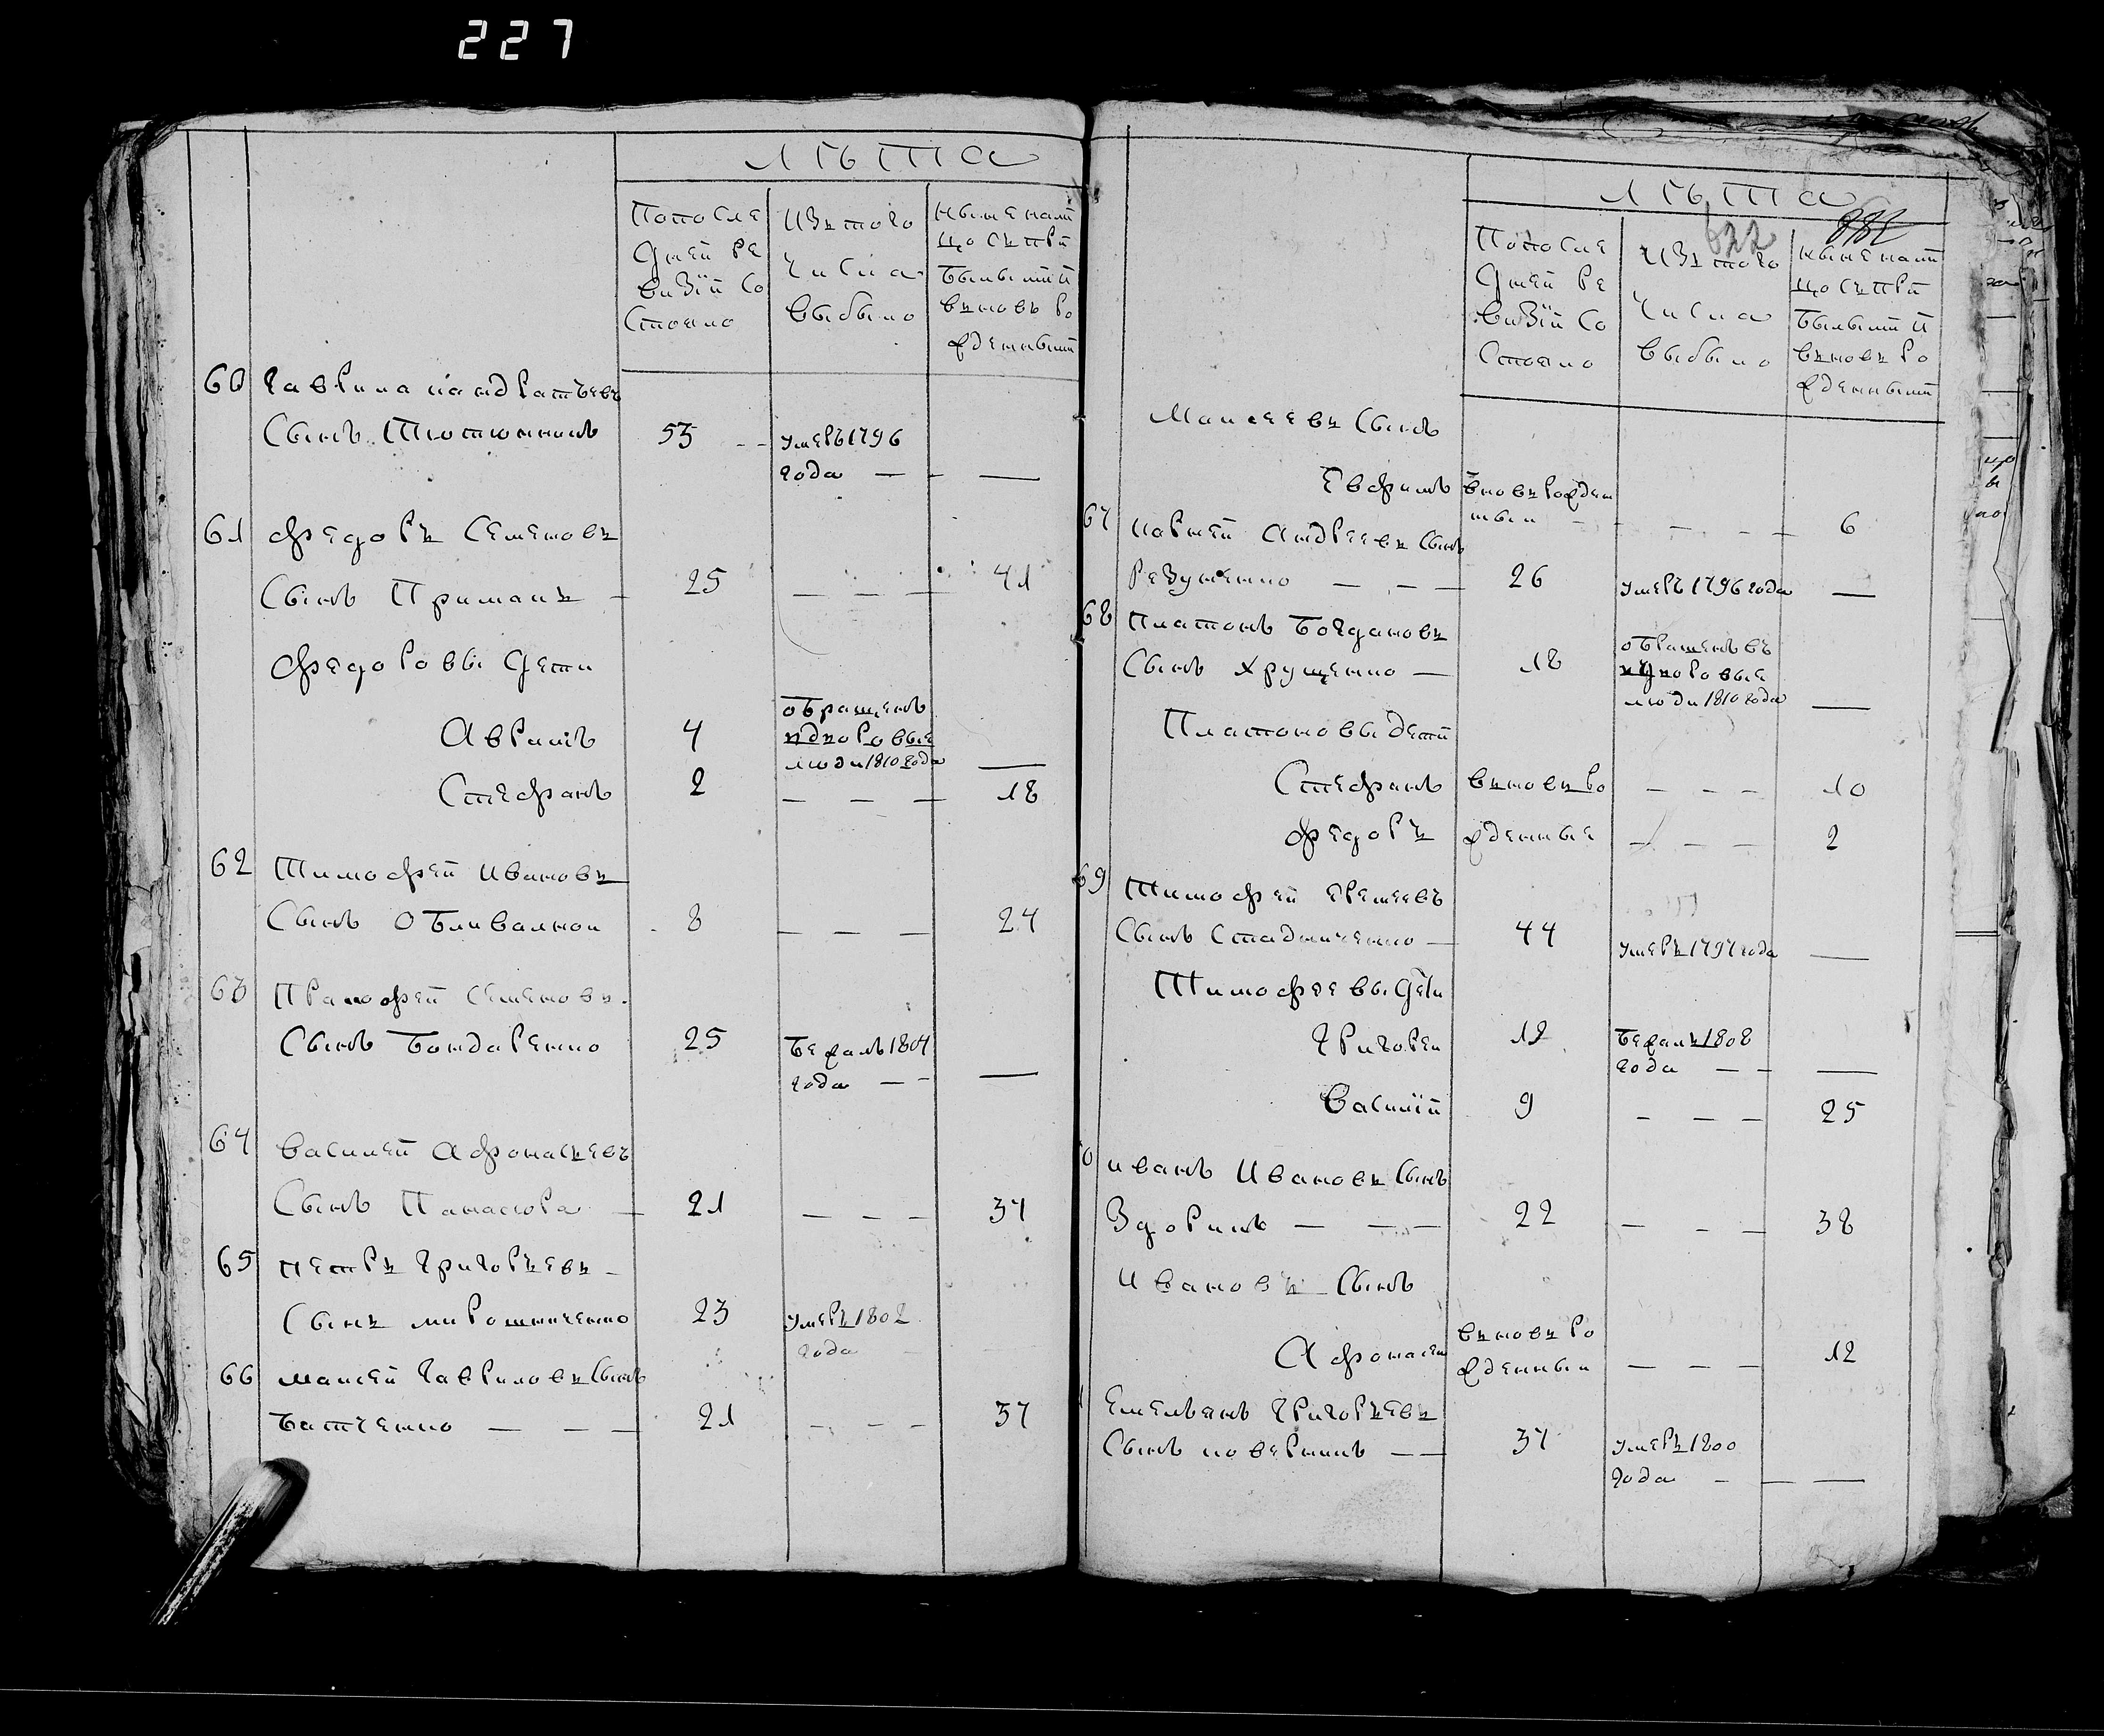 227
лѣта
Попосле
дней ре
визiи со
стояло
изъ того
числа
выбыло
ныне налі
цо съ при
былыми и
вновь ро
жденными
60 Гаврила кандратьевъ
сынъ Тютюнникъ 53 умеръ 1796
года — —
61 федоръ Семеновъ
сынъ Примакъ 25 — — — 41
федоровы дети
Аврамъ 4 обращенъ
въ дворовые
люди 1810 года —
Стефанъ 2 — — — 18
62 Тимофей Ивановъ
сынъ Обливалной 8 — — — 24
63 Прамофей Семеновъ
сынъ Бондаренко 25 бежалъ 1804
года — — —
64 Василей Афонасьевъ
сынъ Панасюра 21 — — — 37
65 петръ Григорьевъ
сынъ мирошниченко 23 умеръ 1802
года
66 маисей Гавриловъ сынъ
Батченко — — — 21 — — — 37
лѣта
622
Попосле
дней ре
визiи со
стояло
изъ того
числа
выбыло
ныне налі
цо съ при
былыми и
вновь ро
жденными
Маисеевъ сынъ
Евфимъ вновь рожден
ный — — — 6
67 корней Андреевъ сынъ
Резуненко — — — 26 умеръ 1796 года —
68 платонъ Богдановъ
сынъ Хрущенко — 18 обращенъ въ
дворовые
люди 1810 года —
Платоновы дети
Стефанъ вновь ро — — — 10
федоръ жденные — — — 2
69 Тимофей Еремеевъ
сынъ Стадниченко — 44 умеръ 1797 года —
Тимофеевы дети
Григорей 12 бежалъ 1808
года — — —
Василiй 9 — — — 25
0 иванъ Ивановъ сынъ
Здорикъ — — — 22 — — — 38
Ивановъ сынъ
Афонасей вновь ро
жденный — — — 12
Емельянъ Григорьевъ
сынъ коверникъ — — 37 умеръ 1800
года — — —